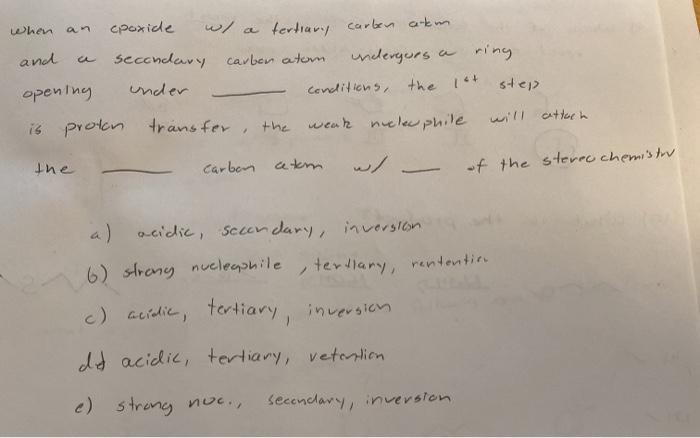 when an epoxide w/ a tertiary carbon atom
and a secondary carbon atom undergoes a ring
opening under ____ conditions, the 1st step
is proton transfer, the weak nucleophile will attach
the ____ carbon atom w/ __ of the stereochemistry
a) acidic, secondary, inversion
b) strong nucleophile, tertiary, rentention
c) acidic, tertiary, inversion
d) acidic, tertiary, retention
e) strong nuc., secondary, inversion